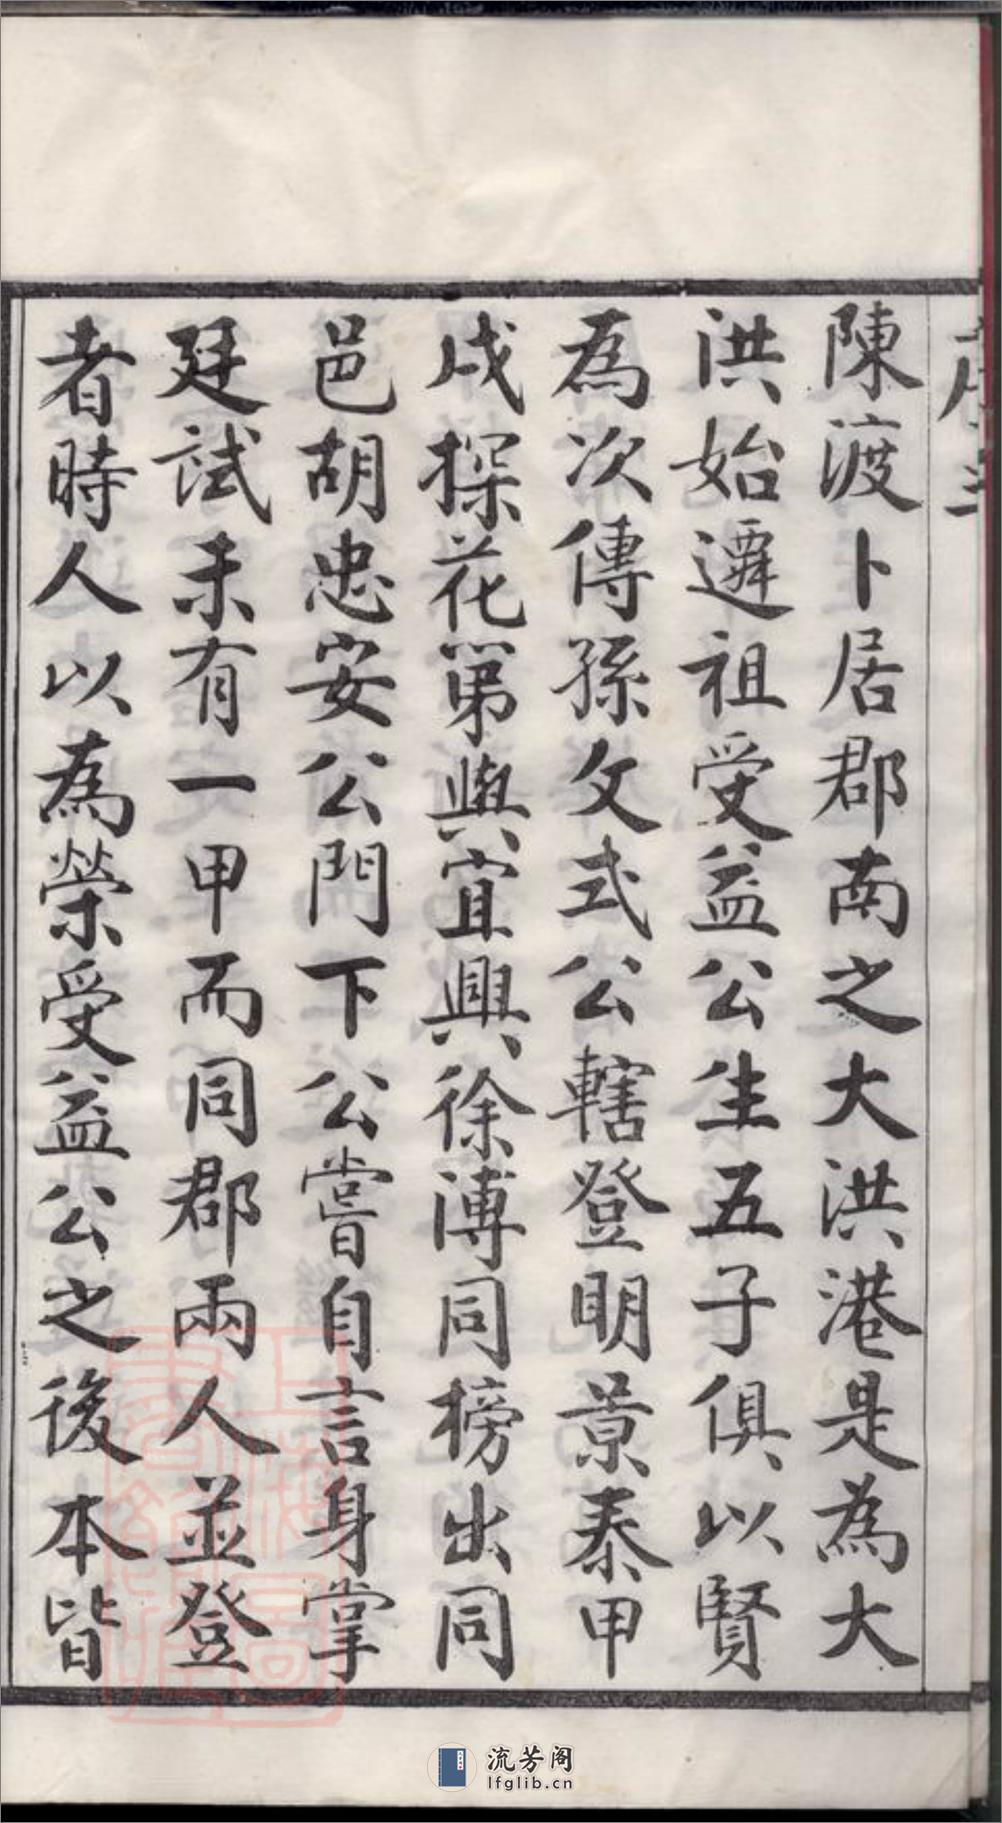 陳渡卜居郡南之大洪港是為大
洪始遷祖受益公生五子俱以賢
為次傳孫文式公轄登明景泰甲
戌探花第與宜興徐溥同榜出同
邑胡忠安公門下公嘗自言身掌
廷試未有一甲而同郡兩人並登
者時人以為榮受益公之後本皆
流芳阁
lfglib.cn